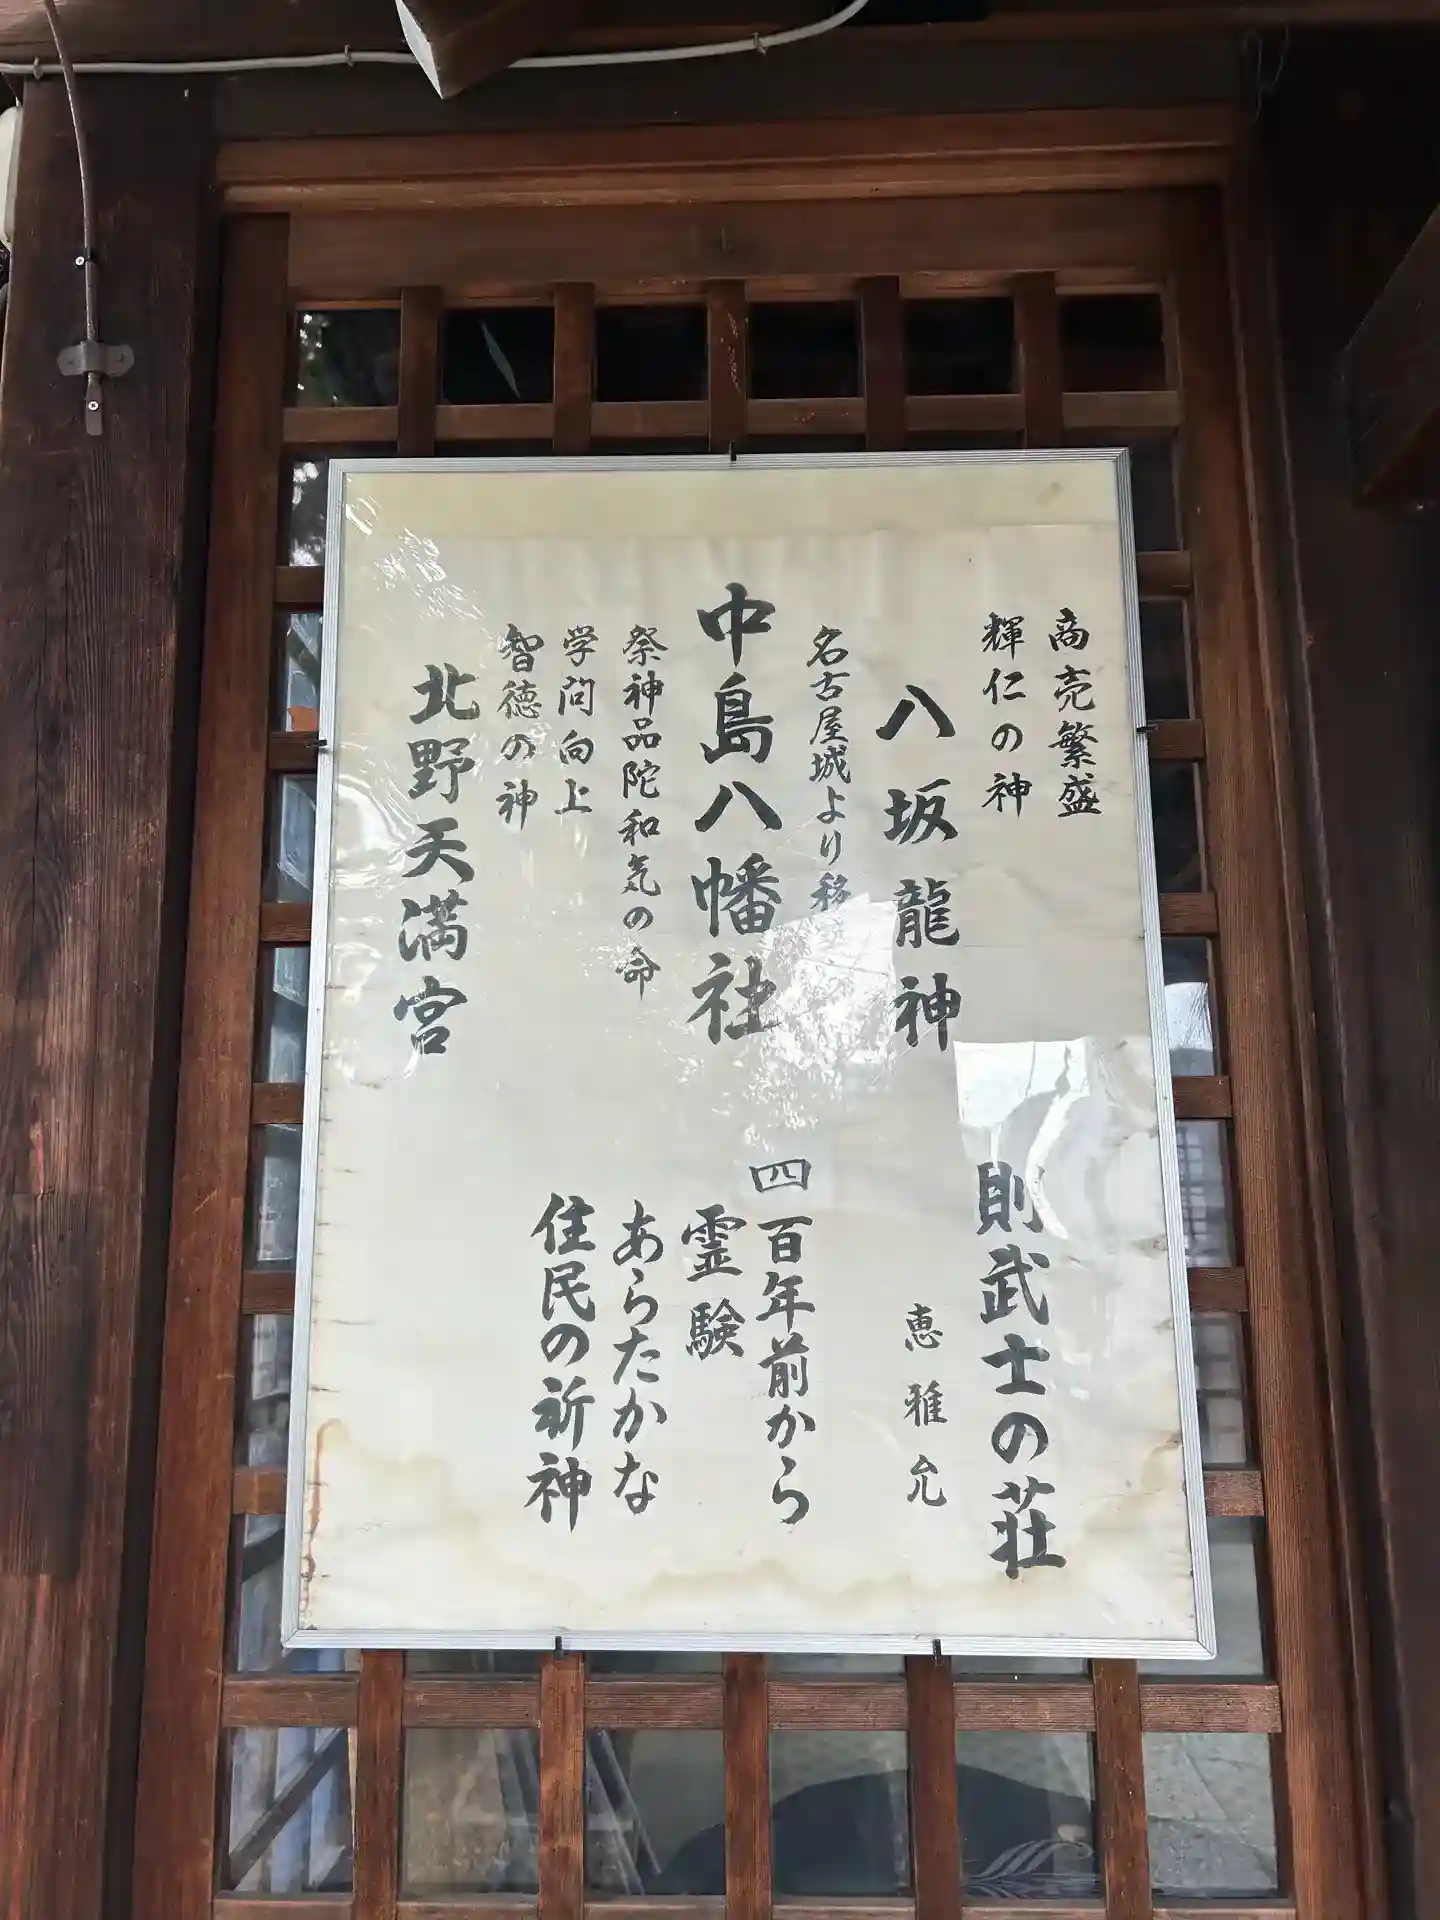 商売繁盛
輝仁の神
八坂龍神
名古屋城より移
中島八幡社
祭神品陀和気の命
学問向上
智徳の神
北野天満宮
則武士の荘
恵雅允
四百年前から
霊験
あらたかな
住民の祈神